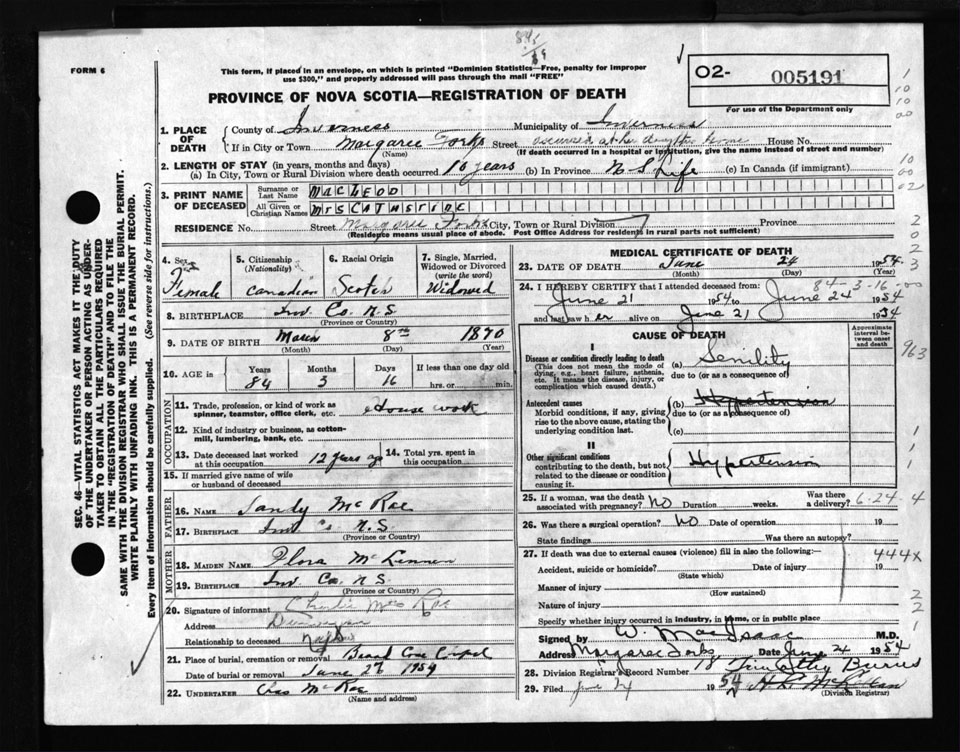 FORM 6
This form, if placed in an envelope, on which is printed "Dominion Statistics—Free, penalty for improper
use $300," and properly addressed will pass through the mail "FREE"
O2- 005191
For use of the Department only
PROVINCE OF NOVA SCOTIA—REGISTRATION OF DEATH
SEC. 46—VITAL STATISTICS ACT MAKES IT THE DUTY
OF THE UNDERTAKER OR PERSON ACTING AS UNDER-
TAKER TO OBTAIN ALL THE PARTICULARS REQUIRED
IN THE "REGISTRATION OF DEATH" AND TO FILE THE
SAME WITH THE DIVISION REGISTRAR WHO SHALL ISSUE THE BURIAL PERMIT.
WRITE PLAINLY WITH UNFADING INK. THIS IS A PERMANENT RECORD.
Every item of information should be carefully supplied. (See reverse side for instructions.)
1. PLACE OF DEATH
County of Inverness Municipality of Inverness
If in City or Town Margaree Forks Street occured at her home House No.
(Name) (If death occurred in a hospital or institution, give the name instead of street and number)
2. LENGTH OF STAY (in years, months and days)
(a) In City, Town or Rural Division where death occurred 10 years (b) In Province N S Life (c) In Canada (if immigrant)
3. PRINT NAME OF DECEASED
Surname or Last Name MACLEOD
All Given or Christian Names MRS CATHERINE
RESIDENCE No. Street Margaree Forks City, Town or Rural Division Province
(Residence means usual place of abode. Post Office Address for residents in rural parts not sufficient)
4. Sex Female
5. Citizenship (Nationality) Canadian
6. Racial Origin Scotch
7. Single, Married, Widowed or Divorced (write the word) Widowed
8. BIRTHPLACE Inv Co. N.S.
(Province or Country)
9. DATE OF BIRTH March 8th 1870
(Month) (Day) (Year)
10. AGE in Years 84 Months 3 Days 16 If less than one day hrs. or min.
OCCUPATION
11. Trade, profession, or kind of work as spinner, teamster, office clerk, etc. House work
12. Kind of industry or business, as cotton-mill, lumbering, bank, etc.
13. Date deceased last worked at this occupation 12 years ago
14. Total yrs. spent in this occupation
15. If married give name of wife or husband of deceased
FATHER
16. NAME Sandy McRae
17. BIRTHPLACE Inv Co N.S.
(Province or Country)
MOTHER
18. MAIDEN NAME Flora McLennan
19. BIRTHPLACE Inv Co. N.S.
(Province or Country)
20. Signature of informant Charlie Mac Rae
Address
Relationship to deceased
21. Place of burial, cremation or removal
Date of burial or removal June 27 1954
22. UNDERTAKER Chas McRae
(Name and address)
MEDICAL CERTIFICATE OF DEATH
23. DATE OF DEATH June 24 1954
(Month) (Day) (Year)
84-3-16-00
24. I HEREBY CERTIFY that I attended deceased from:
June 21 1954 to June 24 1954
and last saw her alive on June 21 1954
CAUSE OF DEATH
Approximate interval between onset and death
I
Disease or condition directly leading to death (a) Senility
(This does not mean the mode of dying, e.g., heart failure, asthenia, etc. It means the disease, injury, or complication which caused death.)
due to (or as a consequence of)
Antecedent causes (b) Hypertension
Morbid conditions, if any, giving rise to the above cause, stating the underlying condition last.
due to (or as a consequence of)
(c)
II
Other significant conditions
contributing to the death, but not related to the disease or condition causing it.
Hypertension
25. If a woman, was the death associated with pregnancy? NO Duration weeks. Was there a delivery? 6-24-4
26. Was there a surgical operation? NO Date of operation 19
State findings Was there an autopsy?
27. If death was due to external causes (violence) fill in also the following:— 444X
Accident, suicide or homicide? Date of injury 19
(State which)
Manner of injury
(How sustained)
Nature of injury
Specify whether injury occurred in industry, in home, or in public place
Signed by W. MacIsaac M.D.
Address Margaree Forks Date June 24 1954
28. Division Registrar's Record Number 18
29. Filed June 24 1954
(Division Registrar)
963